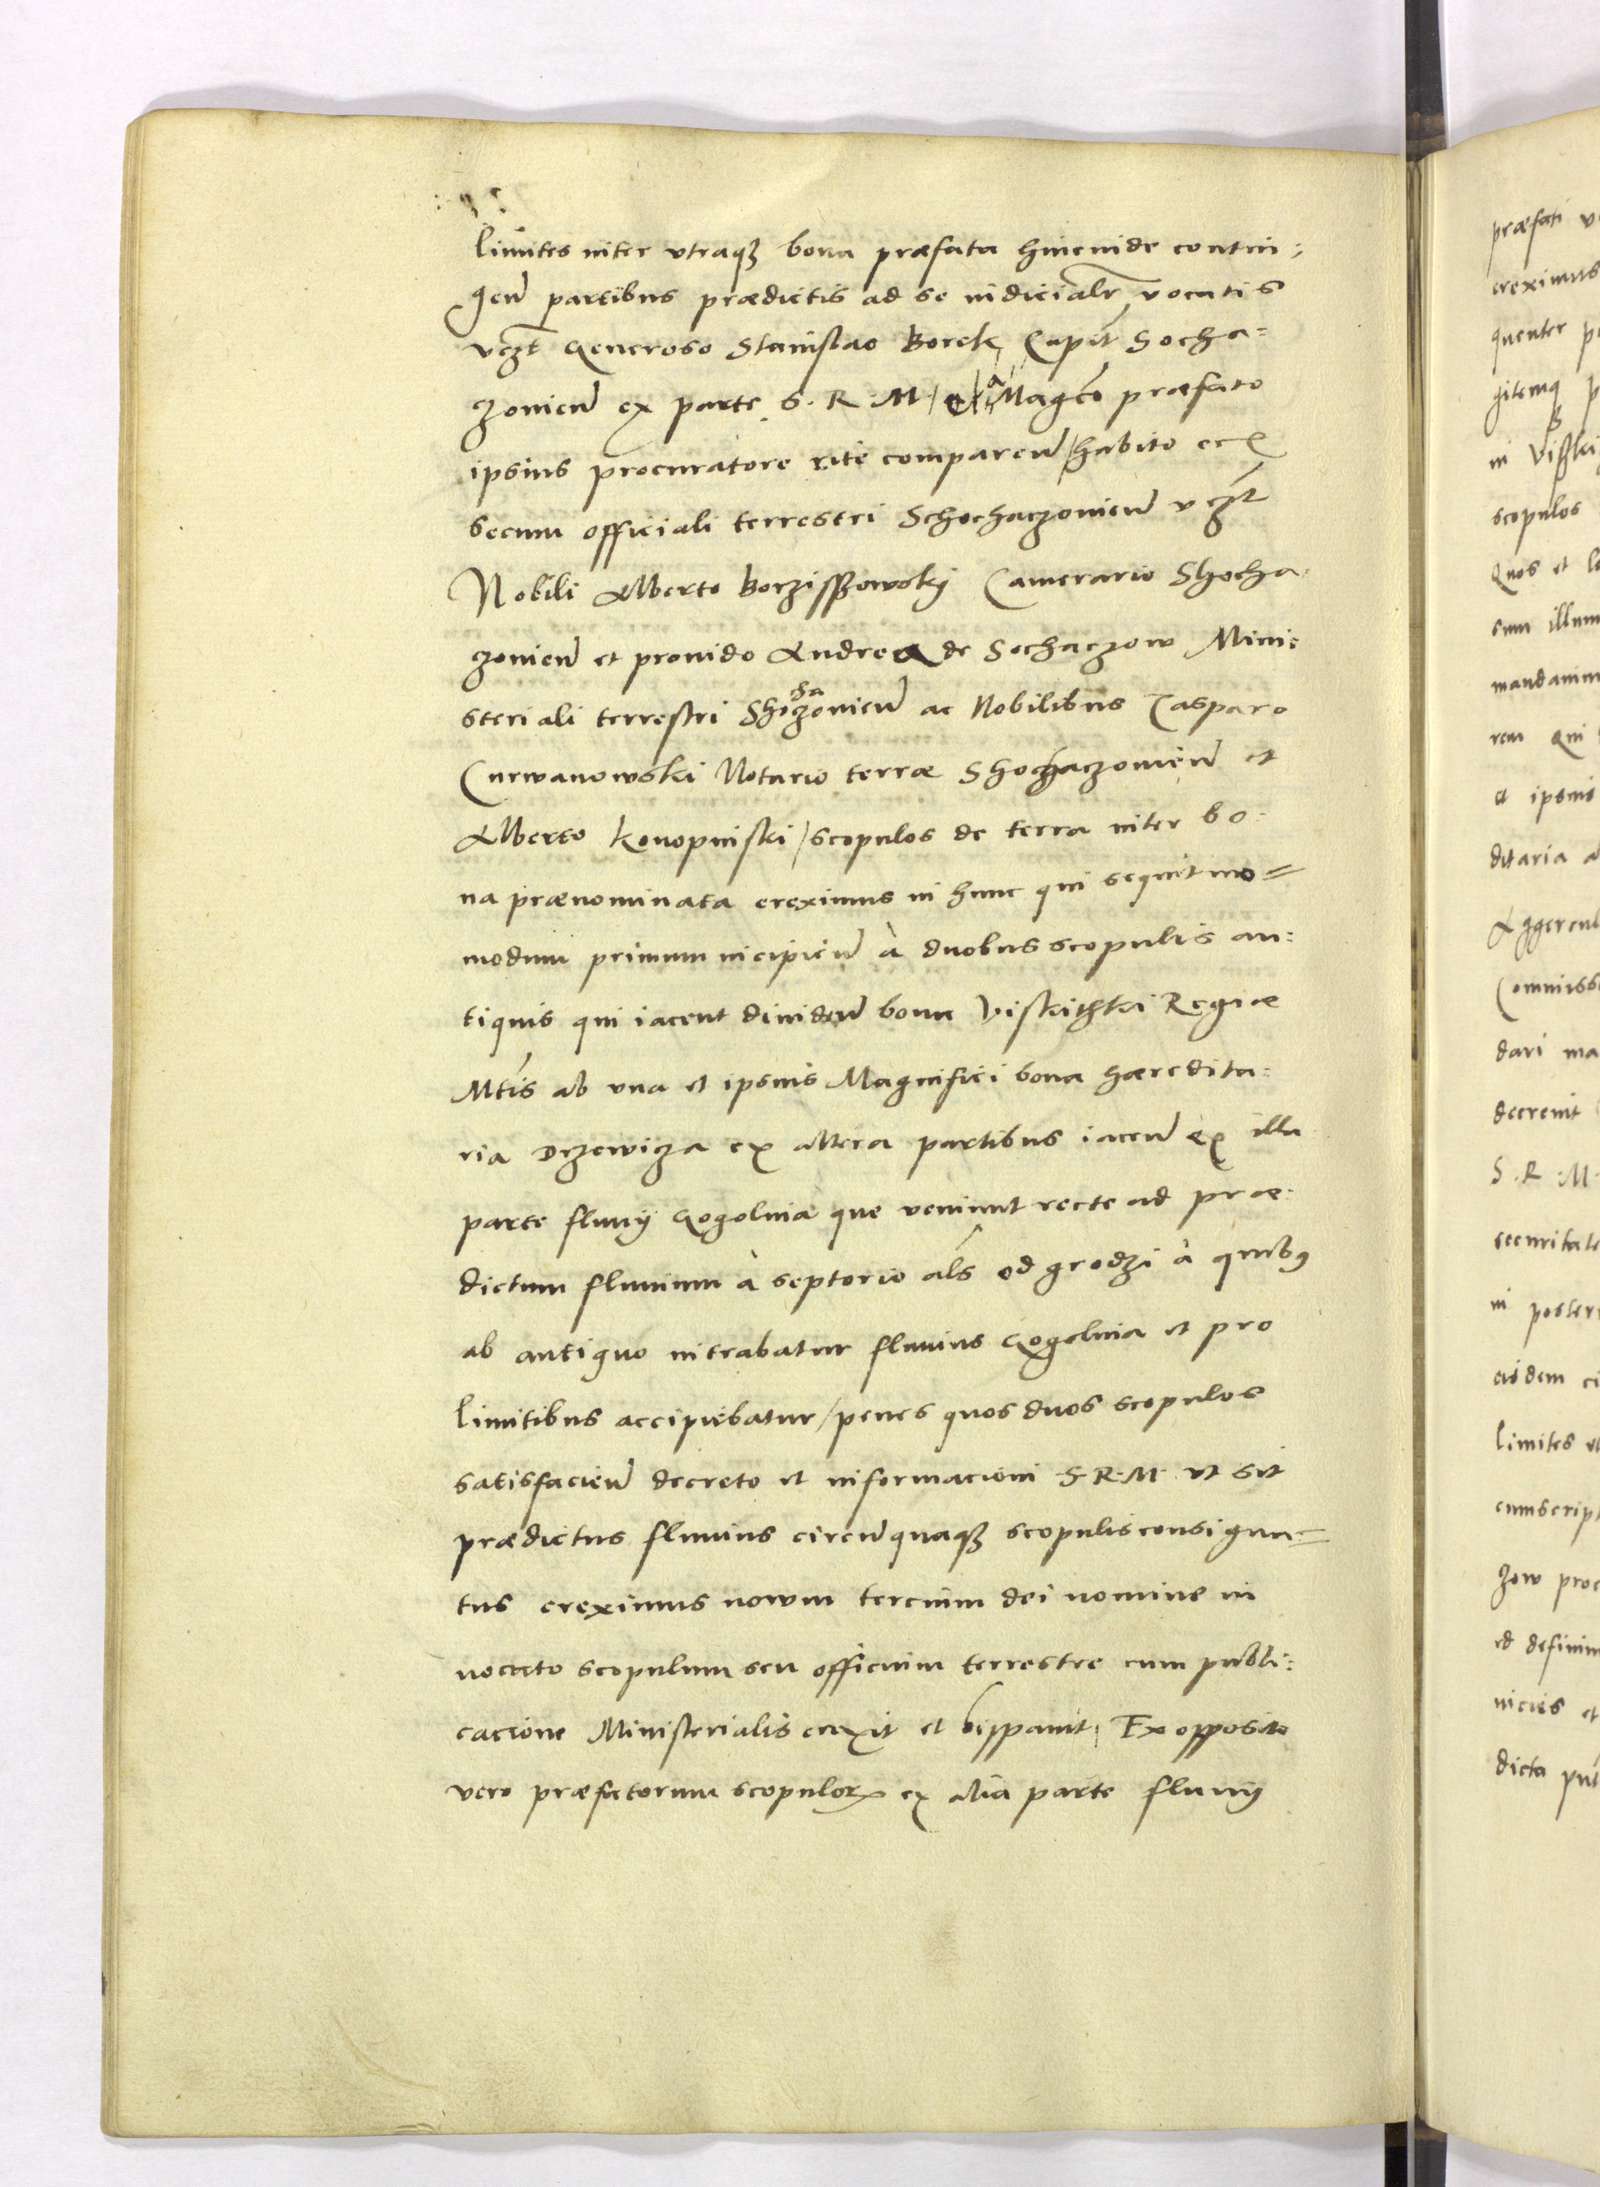 limites inter utraqȝ bona præfata hincinde contin:
gen̄ partibus prædictis ad se iudicialr̄ vocatis
vczt̄ Generoso Stanislao Borek Capit̄ Socha=
czovien̄ ex parte S. R. M / Magco præfato
ipsius procuratore rite comparen̄ / habito
secum officiali terrestri Schochaczovien̄ vczt̄
Nobili Alberto Borzisszowskÿ Camerario Shocha-
czovien̄ et provido Andrea de Sochaczow Mini:
steriali terrestri Shochaczovien̄ ac Nobilibus Casparo
Curwanowski Notario terræ Shochaczovien̄ et
Alberto Konopniski / scopulos de terra inter bo-
na prænominata ereximus in hunc qui sequit mo=
modum primum incipien̄ à duobus scopulis an:
tiquis qui iacent dividen̄ bona Viskithki Regiæ
Mtis ab una et ipsius Magnifici bona hæredita:
ria Drzewicza ex altera partibus iacen̄ ex illa
parte fluvÿ Gogolnia que veniunt recte ad præ-
dictum fluvium à septorio als̄ od grodzi à quibꝯ
ab antiquo intrabatur fluvius Gogolnia et pro
limitibus accipiebatur / penes quos duos scopulos
satisfacien̄ decreto et informacioni S. R. M. ut sit
prædictus fluvius circunquaqȝ scopulis consigna=
tus ereximus novum tercium dei nomine in
vocato scopulum seu officium terrestre cum publi:
cacione Ministerialis erexit et Ex opposito
vero præfatorum scopulor̄ ex alia parte fluvÿ
præfati
ereximus
quenter
gitemqȝ
in Viski
scopulos
Quos et
sum illum
mandavim
rem Qui
et ipsius
ditaria
Aggerem
Commiss
dari ma
decrevit
S. R. M.
securitate
in poster
eisdem
limites
cumscript
zow proc
et definim
viciis et
dicta